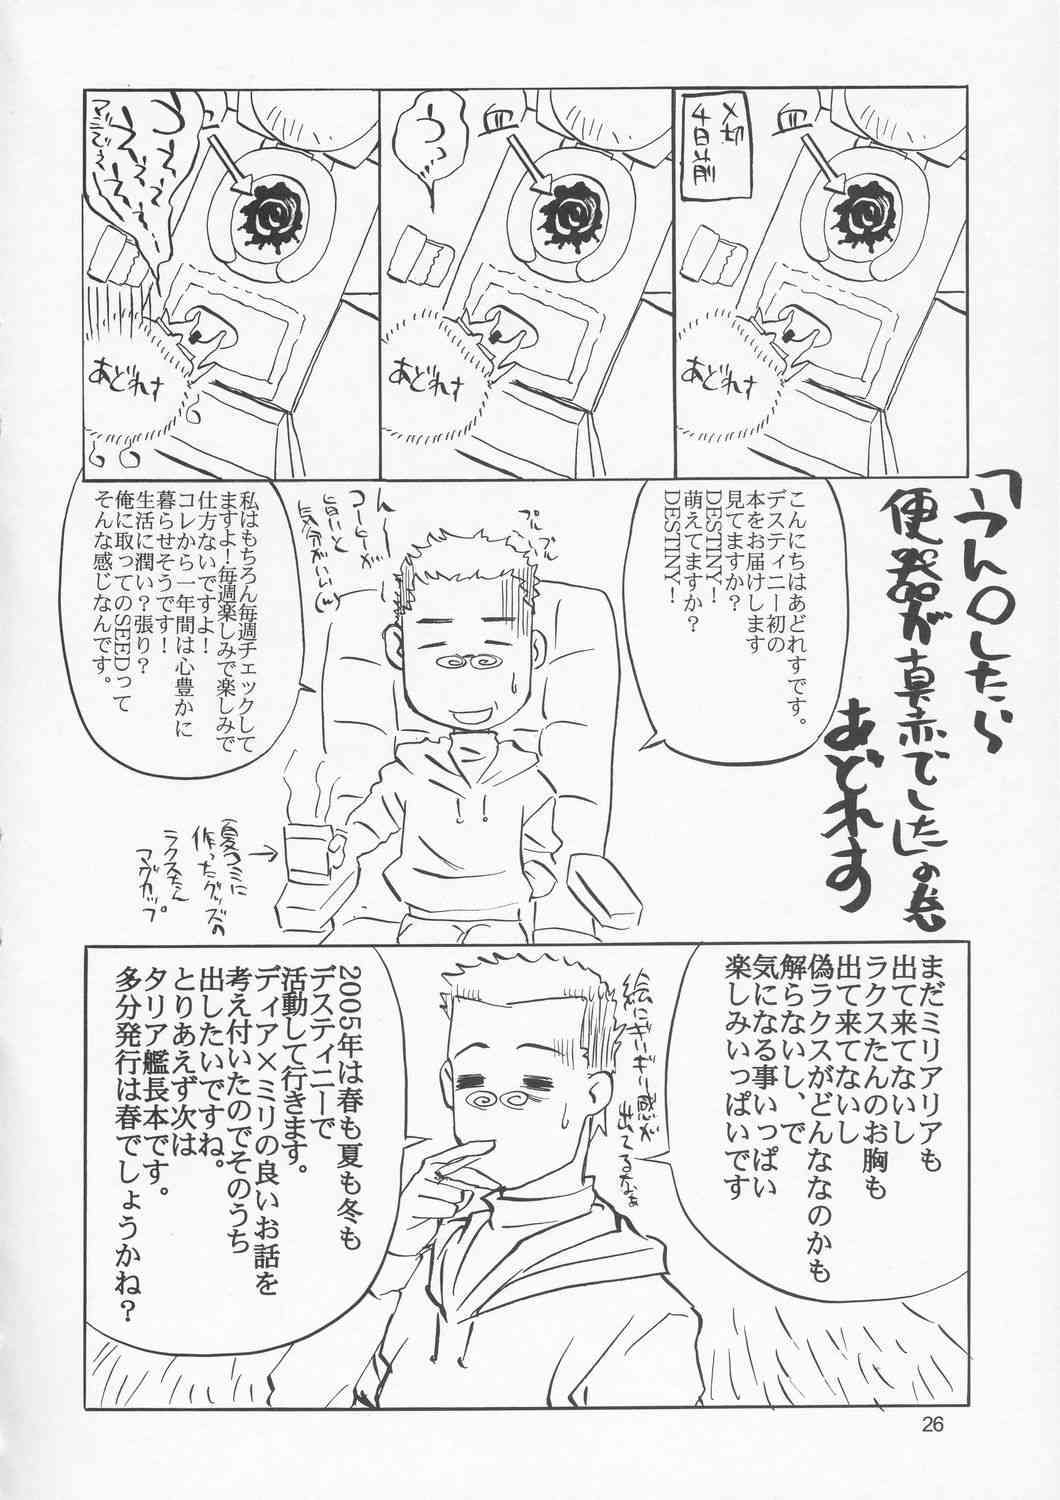 「うん○したら
便器が真っ赤でした」の巻
あどれす
〆切
4日前
血
あどれす
うっ…
血
あどれす
血
あどれす
こんにちはあどれすです。
デスティニー初の
本をお届けします
見てますか？
DESTINY！
萌えてますか？
DESTINY！
プルプル
コーヒーが
旨いと
気分がいい(w)
私はもちろん毎週チェックして
ますよ！毎週楽しみで楽しみで
仕方ないですよ！
コレから一年間は心豊かに
暮らせそうです！
生活に潤い？張り？
俺に取ってのSEEDって
そんな感じなんです。
夏コミに
作ったグッズの
ラクスたん
マグカップ。
まだミリアリアも
出て来てないし
ラクスたんのお胸も
出て来てないし
偽ラクスがどんななのかも
解らないし、で
気になる事いっぱい
楽しみいっぱいです
絵にギーギリー感が
出てるなぁ
2005年は春も夏も冬も
デスティニーで
活動して行きます。
ディア×ミリの良いお話を
考え付いたのでそのうち
出したいですね。
とりあえず次は
タリア艦長本です。
多分発行は春でしょうかね？
26